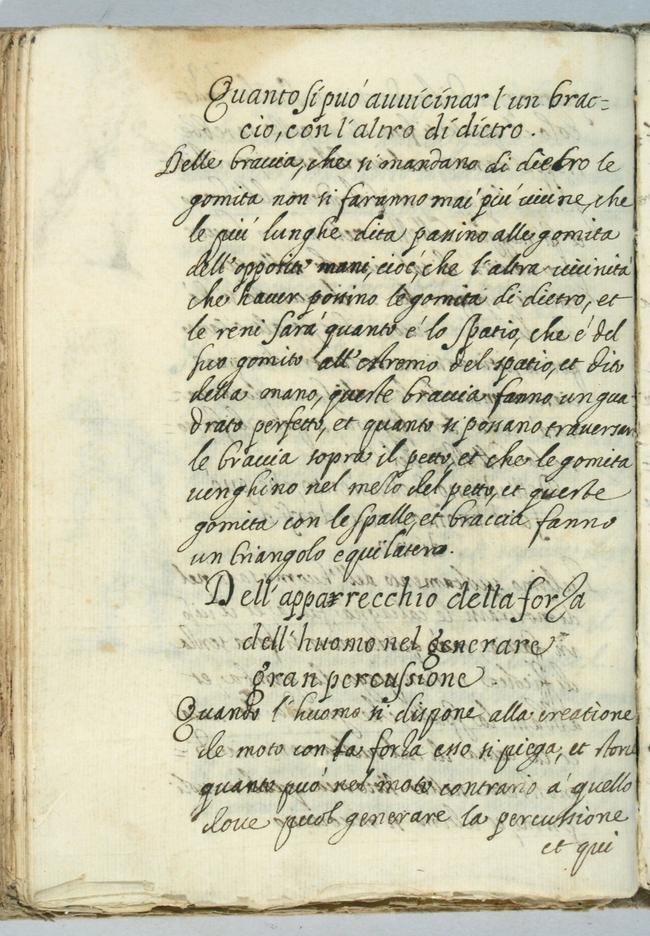 Quanto si può auuicinar l'un brac=
cio, con l'altro di dietro.
Delle braccia, che si mandano di dietro le
gomita non si faranno mai più uicine, che
le più lunghe dita passino alle gomita
dell'opposite mani, cioè, che l'altra uicinità
che hauer possino le gomita di dietro, et
le reni sarà quanto è lo spatio, che è del
suo gomito all'estremo del spatio, et dito
della mano, queste braccia fanno un qua-
drato perfetto, et quanto si possano trauersar
le braccia sopra il petto, et che le gomita
uenghino nel mezo del petto, et queste
gomita con le spalle, et braccia fanno
un triangolo equilatero.
Dell'apparrecchio della forza
dell'huomo nel generare
gran percussione
Quando l'huomo si dispone alla creatione
de moto con la forza esso si piega, et storce
quanto può nel moto contrario à quello
doue puol generare la percussione
et qui